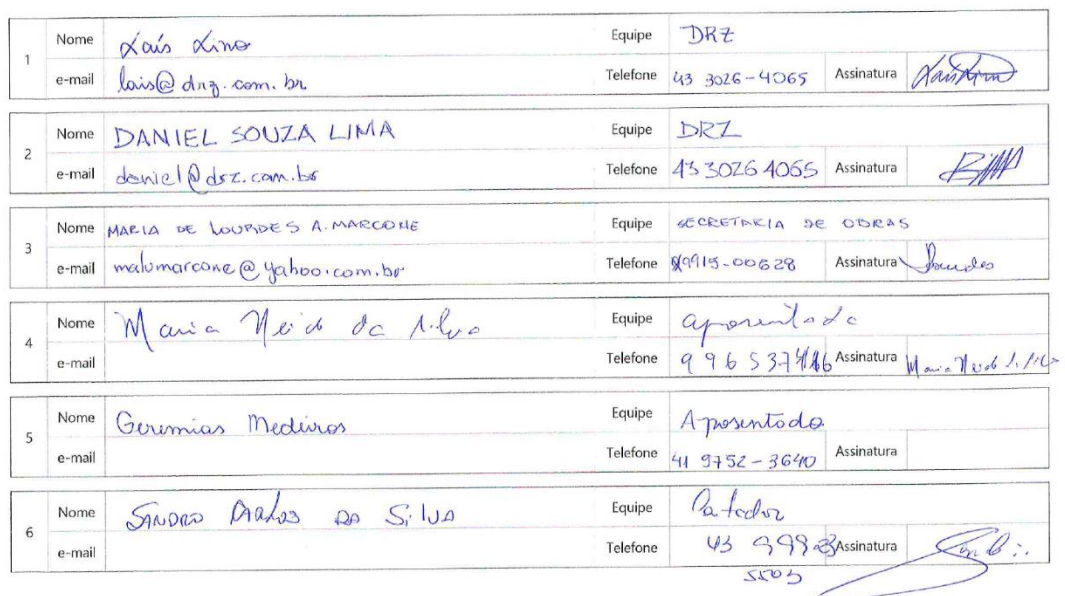 1 Nome Laís Lino Equipe DRZ
e-mail lais@drz.com.br Telefone 43 3026-4065 Assinatura Laís Lino
2 Nome DANIEL SOUZA LIMA Equipe DRZ
e-mail daniel@drz.com.br Telefone 43 3026 4065 Assinatura
3 Nome MARIA DE LOURDES A. MARCONE Equipe SECRETARIA DE OBRAS
e-mail malumarcone@yahoo.com.br Telefone 9915-00628 Assinatura Lourdes
4 Nome Maria Neide da Silva Equipe aposentada
e-mail Telefone Assinatura Maria Neide
5 Nome Geremias Medeiros Equipe Aposentado
e-mail Telefone 41 9752-3640 Assinatura
6 Nome SANDRO CARLOS DA SILVA Equipe Catador
e-mail Telefone 43 9992 Assinatura
5503